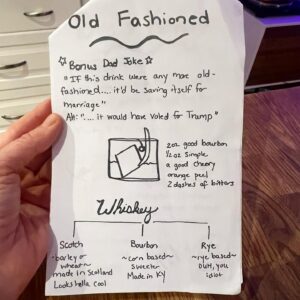 Old Fashioned
☆ Bonus Dad Joke ☆
"If this drink were any more old-
fashioned.... it'd be saving itself for
marriage"
Alt: ".... it would have voted for Trump"
2oz good bourbon
1/2 oz simple
a good cherry
orange peel
2 dashes of bitters
Whiskey
Scotch
~barley or
wheat~
made in Scotland
Looks hella cool
Bourbon
~corn based~
Sweeter
Made in KY
Rye
~rye based~
Duh, you
idiot